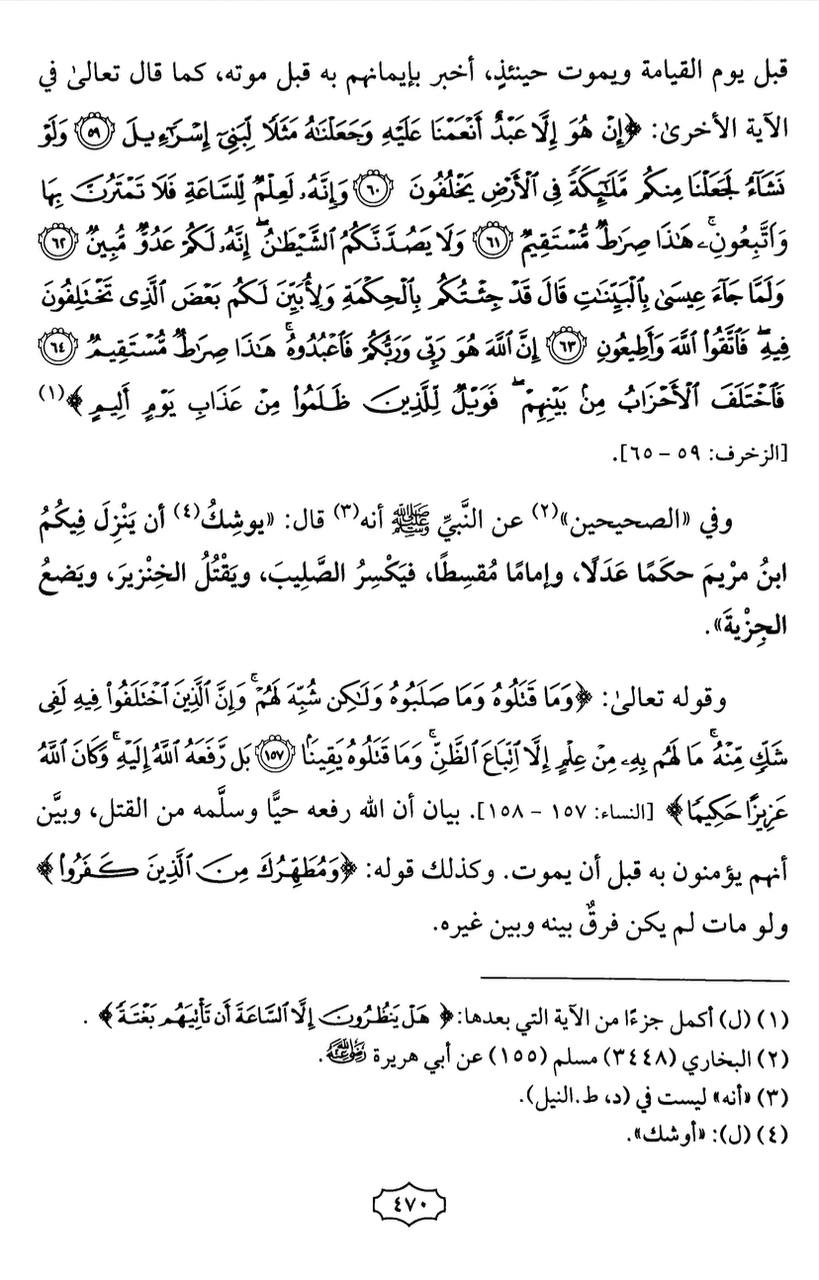 قبل يوم القيامة ويموت حينئذٍ، أخبر بإيمانهم به قبل موته، كما قال تعالىٰ في
الآية الأخرىٰ: ﴿إِنْ هُوَ إِلَّا عَبْدٌ أَنْعَمْنَا عَلَيْهِ وَجَعَلْنَاهُ مَثَلًا لِبَنِي إِسْرَاءِيلَ ٥٩ وَلَوْ
نَشَاءُ لَجَعَلْنَا مِنكُم مَّلَائِكَةً فِي الْأَرْضِ يَخْلُفُونَ ٦٠ وَإِنَّهُ لَعِلْمٌ لِّلسَّاعَةِ فَلَا تَمْتَرُنَّ بِهَا
وَاتَّبِعُونِ هَٰذَا صِرَاطٌ مُّسْتَقِيمٌ ٦١ وَلَا يَصُدَّنَّكُمُ الشَّيْطَانُ إِنَّهُ لَكُمْ عَدُوٌّ مُّبِينٌ ٦٢
وَلَمَّا جَاءَ عِيسَىٰ بِالْبَيِّنَاتِ قَالَ قَدْ جِئْتُكُم بِالْحِكْمَةِ وَلِأُبَيِّنَ لَكُم بَعْضَ الَّذِي تَخْتَلِفُونَ
فِيهِ فَاتَّقُوا اللَّهَ وَأَطِيعُونِ ٦٣ إِنَّ اللَّهَ هُوَ رَبِّي وَرَبُّكُمْ فَاعْبُدُوهُ هَٰذَا صِرَاطٌ مُّسْتَقِيمٌ ٦٤
فَاخْتَلَفَ الْأَحْزَابُ مِنْ بَيْنِهِمْ فَوَيْلٌ لِّلَّذِينَ ظَلَمُوا مِنْ عَذَابِ يَوْمٍ أَلِيمٍ﴾(١)
[الزخرف: ٥٩ – ٦٥].
وفي «الصحيحين»(٢) عن النَّبيِّ ﷺ أنه(٣) قال: «يوشِكُ(٤) أن يَنْزِلَ فِيكُمُ
ابنُ مرْيمَ حكَمًا عَدَلًا، وإمامًا مُقسِطًا، فيَكْسِرُ الصَّلِيبَ، ويَقْتُلُ الخِنْزيرَ، ويَضعُ
الجِزْيةَ».
وقوله تعالىٰ: ﴿وَمَا قَتَلُوهُ وَمَا صَلَبُوهُ وَلَٰكِن شُبِّهَ لَهُمْ وَإِنَّ الَّذِينَ اخْتَلَفُوا فِيهِ لَفِي
شَكٍّ مِّنْهُ مَا لَهُم بِهِ مِنْ عِلْمٍ إِلَّا اتِّبَاعَ الظَّنِّ وَمَا قَتَلُوهُ يَقِينًا ١٥٧ بَل رَّفَعَهُ اللَّهُ إِلَيْهِ وَكَانَ اللَّهُ
عَزِيزًا حَكِيمًا﴾ [النساء: ١٥٧ – ١٥٨]. بيان أن الله رفعه حيًّا وسلَّمه من القتل، وبيَّن
أنهم يؤمنون به قبل أن يموت. وكذلك قوله: ﴿وَمُطَهِّرُكَ مِنَ الَّذِينَ كَفَرُوا﴾
ولو مات لم يكن فرقٌ بينه وبين غيره.
(١) (ل) أكمل جزءًا من الآية التي بعدها: ﴿هَلْ يَنظُرُونَ إِلَّا السَّاعَةَ أَن تَأْتِيَهُم بَغْتَةً﴾ .
(٢) البخاري (٣٤٤٨) مسلم (١٥٥) عن أبي هريرة رضي الله عنه.
(٣) «أنه» ليست في (د، ط.النيل).
(٤) (ل): «أوشك».
٤٧٠